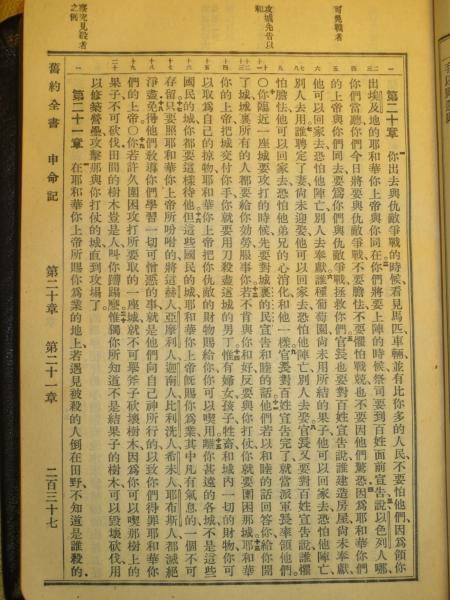 可免戰者
攻城先告以和
察究見殺者之例
第二十章 你出去與仇敵爭戰的時候、看見馬匹車輛、並有比你多的人民、不要怕他們、因為領你
出埃及地的耶和華你上帝與你同在、你們將要上陣的時候、祭司要到百姓面前宣告說、以色列人哪、
你們當聽、你們今日將要與仇敵爭戰、不要膽怯、不要懼怕戰兢、也不要因他們驚恐、因為耶和華你們
的上帝與你們同去、要為你們與仇敵爭戰、拯救你們、官長也要對百姓宣告說、誰建造房屋、尚未奉獻、
他可以回家去、恐怕他陣亡、別人去奉獻、誰種葡萄園、尚未用所結的果子、他可以回家去、恐怕他陣亡、
別人去用、誰聘定了妻、尚未迎娶、他可以回家去、恐怕他陣亡、別人去娶、官長又要對百姓宣告說、誰懼
怕膽怯、他可以回家去、恐怕他弟兄的心消化、和他一樣、官長對百姓宣告完了、就當派軍長率領他們、
〇你臨近一座城、要攻打的時候、先要對城裏的民宣告和睦的話、他們若以和睦的話回答你、給你開
了城、城裏所有的人都要給你效勞、服事你、若不肯與你和好、反要與你打仗、你就要圍困那城、耶和華
你的上帝把城交付你手、你就要用刀殺盡這城的男丁、惟有婦女、孩子、牲畜、和城內一切的財物、你可
以取為自己的掠物、耶和華你上帝把你仇敵的財物賜給你、你可以喫用、離你甚遠的各城、不是這些
國民的城、你都要這樣待他、但這些國民的城、耶和華你上帝既賜你為業、其中凡有氣息的、一個不可
存留、只要照耶和華你上帝所吩咐的、將這赫人、亞摩利人、迦南人、比利洗人、希未人、耶布斯人、都滅絕
淨盡、免得他們教導你們學習一切可憎惡的事、就是他們向自己神所行的、以致你們得罪耶和華你
們的上帝、〇你若許久圍困攻打所要取的一座城、就不可舉斧子砍壞樹木、因為你可以喫那樹上的
果子、不可砍伐、田間的樹木豈是人、叫你蹧蹋麼、惟獨你所知道不是結果子的樹木、可以毀壞砍伐、用
以修築營壘、攻擊那與你打仗的城、直到攻塌了、
第二十一章 在耶和華你上帝所賜你為業的地上、若遇見被殺的人倒在田野、不知道是誰殺的、
舊約全書 申命記 第二十章 第二十一章 二百三十七